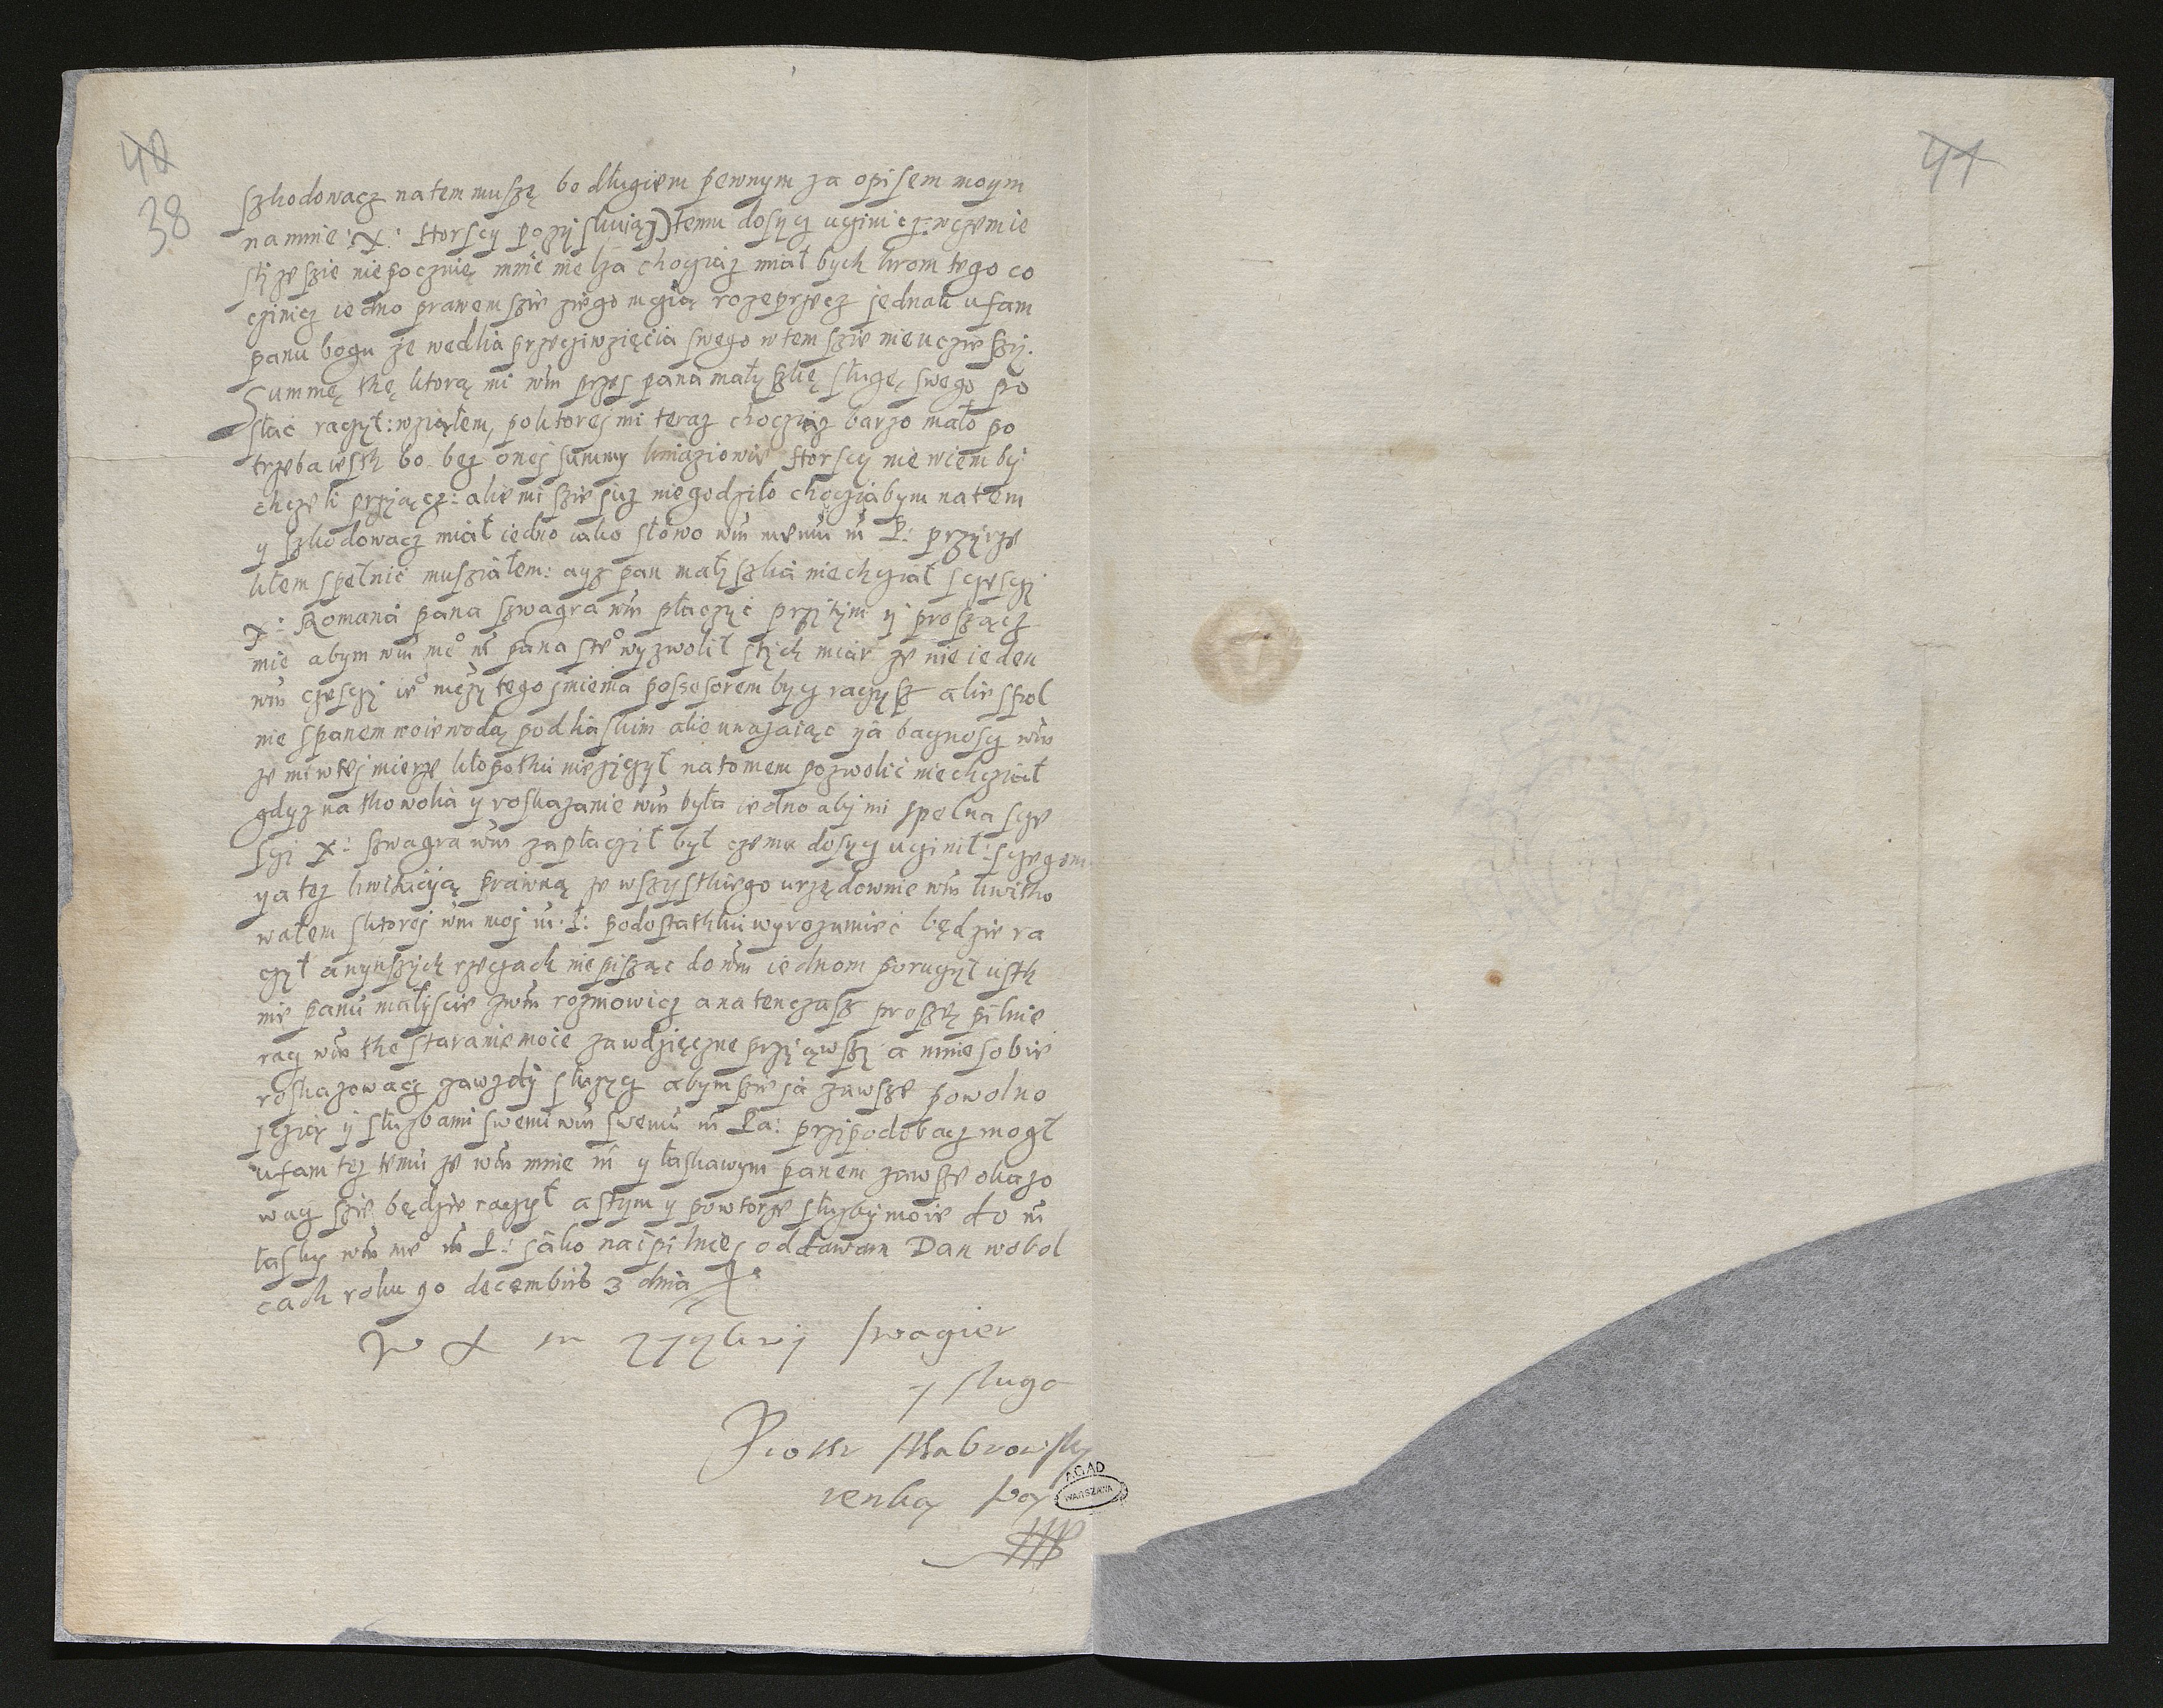 40
38
41
szkodowacz na tem muszę bo długiem pewnym za opisem moym
na mnie :X: Horscy pozyskuią) temu dosycz uginicz: wczem ie
sly ze szie niepocznię mnie nelza chogiaz miał bych krom tego co
czinicz iedno prawem szie ziego mgią rozeprzecz jednak ufam
panu bogu że wedlia przecziwzięcia swego w tem szie nieuczieszy.
Summę thę ktorą mi wm przes pana małyszkę sługę swego po
słać raczył: wziąłem, po ktorej mi teraz choczaz barzo mało po
trzeba iesth bo bez onej summy kniaziowie Horscy nie wiem by
chczeli prziącz: alie mi szie jusz niegodziło chocziabym na tem
y szkodowacz miał iedno iako słowo wm memu m P: przyrze
kłem spełnić musziałem: aysz pan małyszka niechciał sczesczy
X: Romana pana szwagra wm płaczyć przitym y proszącz
mie abym wm mo m pana sweo wyzwolił stych miar ze nie ieden
wm czesczi ieo mczy tego imienia possesorem bycz raczysz alie spol
nie spanem woiewodą podliaskim alie uwazaiąc ia bacznoscz wm
ze mi wtej mierze kłopothu nieziczył na to mem pozwolić niechcział
gdyz na tho wolia y roskazanie wm była iedno aby mi spelna scze
sczi X: szwagra wm zapłacził był czemu dosycz uczinił: sczegom
ya tez kwitacyją prawną ze wszystkiego urzędownie wm kwitho
wałem sktorej wm moj m. P: podostathku wyrozumieć będzie ra
czył a nynszych rzeczach niepisząc do wm iednom poruczył usth
nie panu małyscie zwm rozmowicz a na tenczasz proszę pilnie
racz wm tho staranie moie zawdzięczne prziąwszy a mnie sobie
roskazowacz zawzdy służycz abym szie ia zawsze powolno
sczią y służbami swemi wm swemu m Pa: przipodobacz mogł
ufam tez temu ze wm mnie m y łaskawym panem zawsze okazo
wacz szie będzie raczył a stym y powtorze służby moie do m
łasky wm meo m P: jako naipilniej oddawam Dan wokol
cach roku 90 decembris 3 dnia
W X M zyczliwy swagier
y sługa
Piotr Sthabrowsky
renką swą
AGAD
WARSZAWA